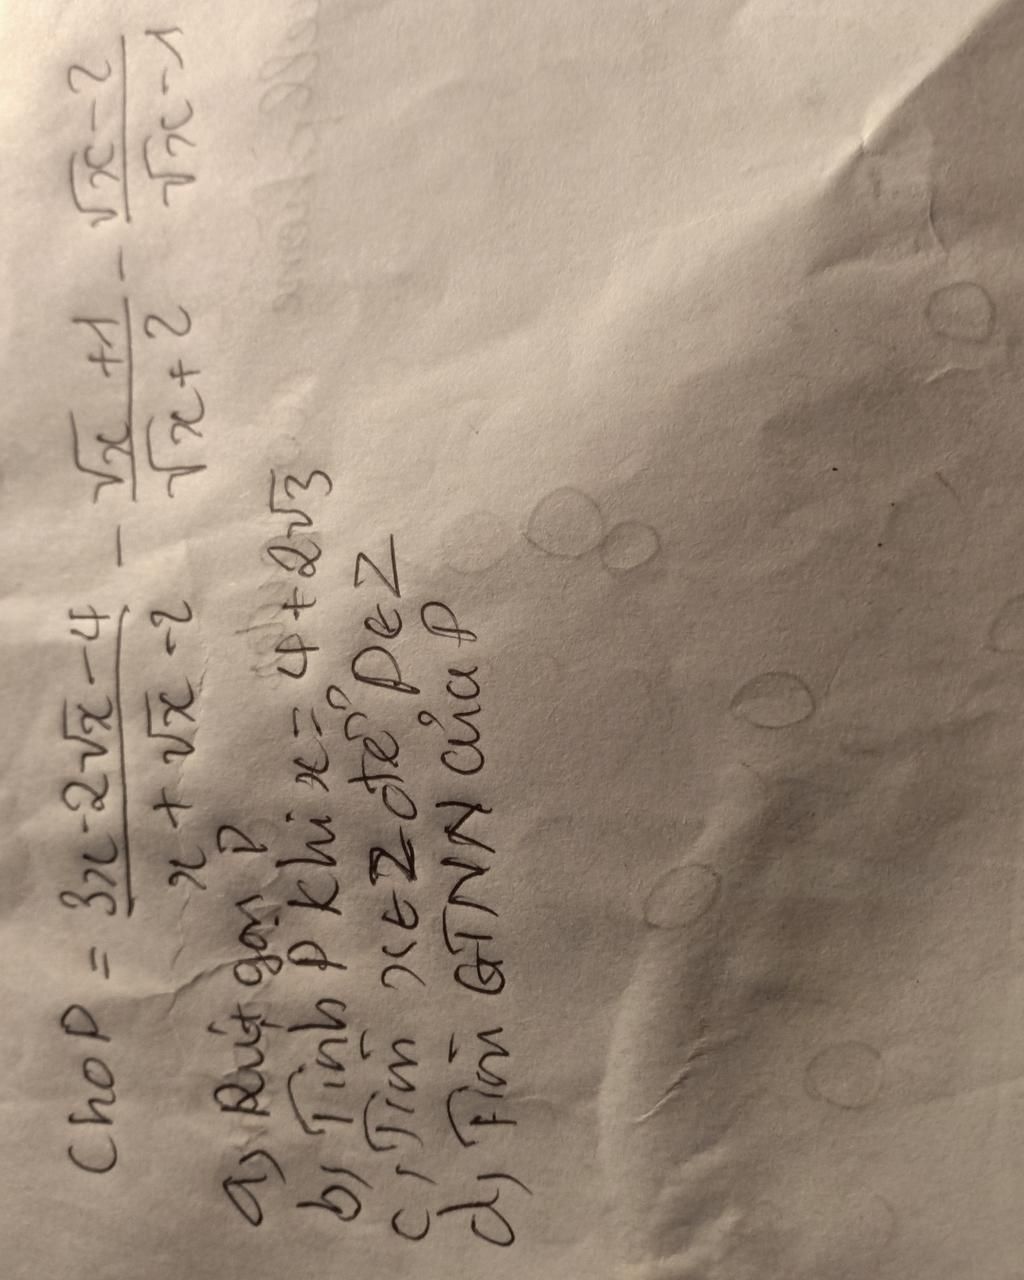 Cho P = \frac{3x-2\sqrt{x}-4}{x+\sqrt{x}-2} - \frac{\sqrt{x}+1}{\sqrt{x}+2} - \frac{\sqrt{x}-2}{\sqrt{x}-1}
a, Rút gọn P
b, Tính P khi x = 4+2√3
c, Tìm x∈Z để P∈Z
d, Tìm GTNN của P